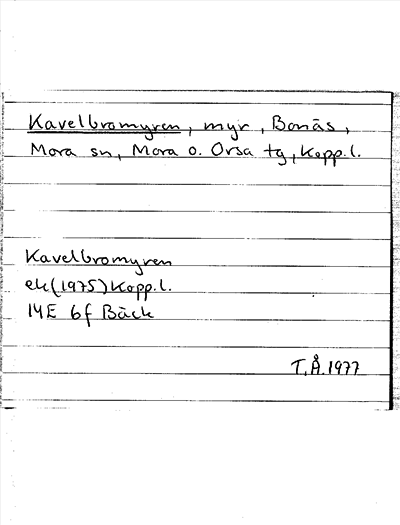 Kavelbromyren, myr, Bonäs,
Mora sn, Mora o. Orsa tg, Kopp.l.
Kavelbromyren
ek(1975)Kopp.l.
14E 6f Bäck
T.Å.1977